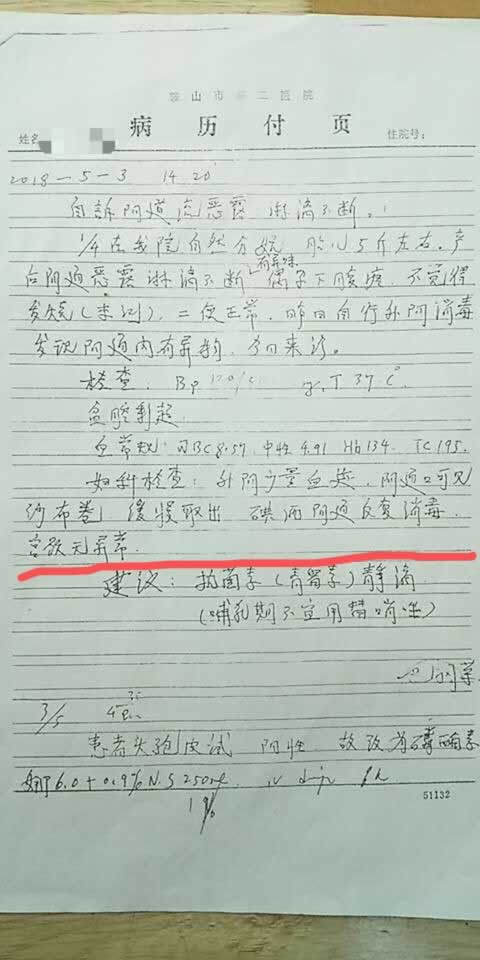 鞍山市第二医院
姓名 病历付页 住院号:
2018-5-3 14 20
自訴阴道流恶露淋漓不断。
1/4在我院自然分娩 胎儿5斤左右。产
有异味
后阴道恶露淋漓不断 偶尔下腹痛, 不觉得
发烧(未测), 二便正常, 昨日自行外阴消毒
发现阴道内有异物, 今日来诊。
检查: Bp T 37.℃
盆腔彩超
血常规: WBC 8.57 中性 4.91 Hb 134. 195.
妇科检查: 外阴少量血迹, 阴道口可见
纱布卷, 缓慢取出 碘酒阴道反复消毒,
宫颈无异常.
建议: 抗菌素(青留素)静滴
(哺乳期不宜用替硝唑)
3/5
患者头孢皮试 阳性 故改为 霉素
6.0+0.9% N.S 250ml iv
51132